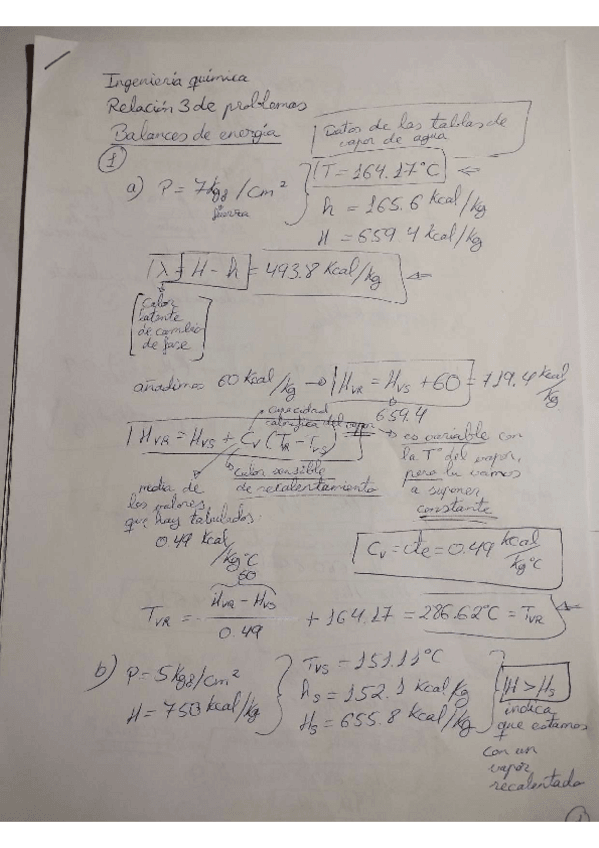 Ingeniería química
Relación 3 de problemas
Balances de energía
Datos de las tablas de
vapor de agua
1
a) P = 7 kg/cm²
fuerza
T = 164.17°C
h = 165.6 Kcal/kg
H = 659.4 Kcal/kg
λ = H - h = 493.8 Kcal/kg
calor
latente
de cambio
de fase
añadimos 60 Kcal/kg → H_VR = H_VS + 60 = 719.4 Kcal/kg
659.4
capacidad
calorífica del vapor
H_VR = H_VS + C_V (T_R - T_VS)
→ es variable con
la Tª del vapor,
pero la vamos
a suponer
constante
calor sensible
de recalentamiento
media de
los valores
que hay tabulados.
0.49 Kcal
/kg°C
C_V = cte = 0.49 Kcal/kg°C
60
T_VR = (H_VR - H_VS)/0.49 + 164.17 = 286.62°C = T_VR
b) P = 5 kg/cm²
H = 750 Kcal/kg
T_VS = 151.11°C
h_S = 152.1 Kcal/kg
H_S = 655.8 Kcal/kg
H > H_S
indica
que estamos
con un
vapor
recalentado